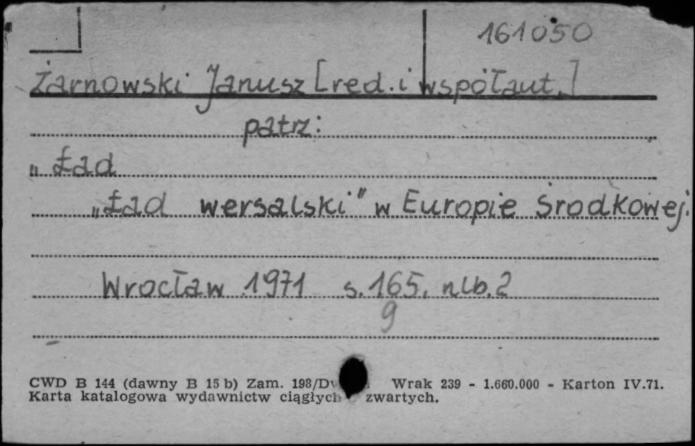 161050
Żarnowski Janusz [red. i współaut.]
patrz:
„Ład
„Ład wersalski" w Europie Środkowej.
Wrocław 1971 s. 165, nlb. 2
9
CWD B 144 (dawny B 15 b) Zam. 198/ Wrak 239 - 1.660.000 - Karton IV.71.
Karta katalogowa wydawnictw ciągłych zwartych.